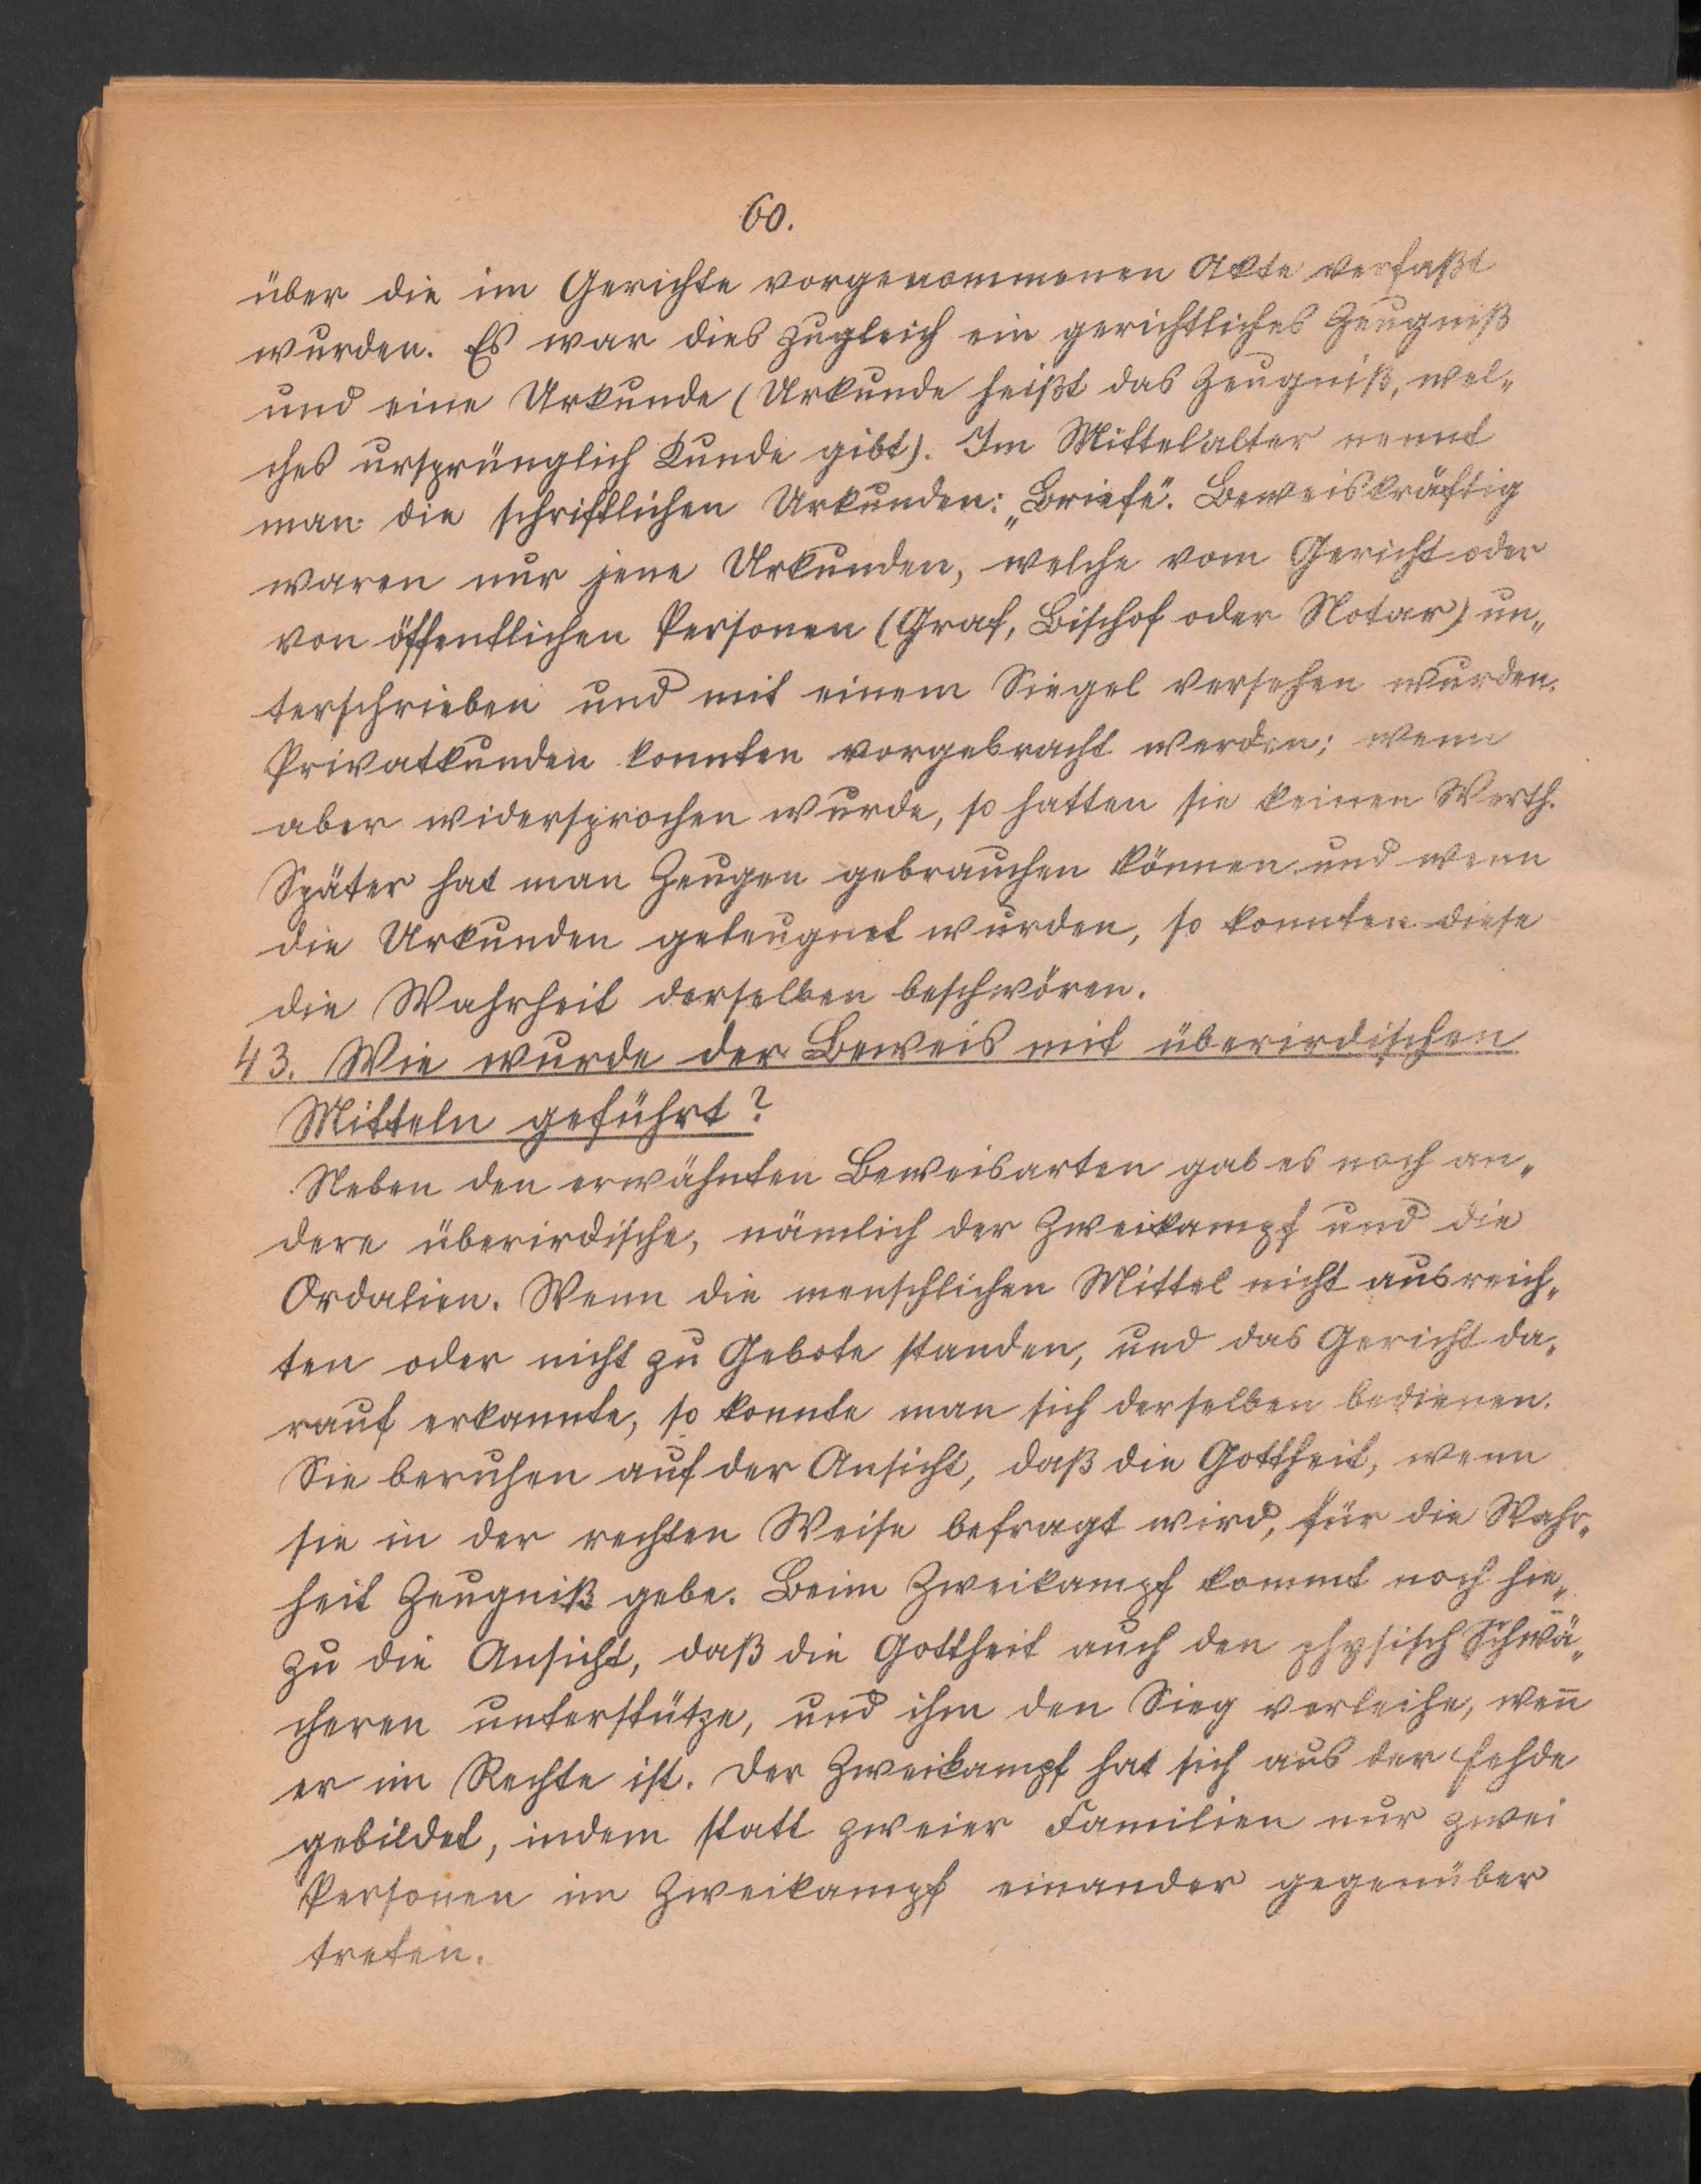 60.
über die im Gerichte vorgenommenen Akte verfaßt
wurden. Es war dies zugleich ein gerichtliches Zeugniß
und eine Urkunde (Urkunde heißt das Zeugniß, wel„
ches ursprünglich Kunde gibt). Im Mittelalter nennt
man die schriftlichen Urkunden: „Briefe". Beweiskräftig
waren nur jene Urkunden, welche vom Gericht oder
von öffentlichen Personen (Graf, Bischof oder Notar) un„
terschrieben und mit einem Siegel versehen wurden.
Privatkunden konnten vorgebracht werden; wenn
aber widersprochen wurde, so hatten sie keinen Werth.
Später hat man Zeugen gebrauchen können und wenn
die Urkunden geleugnet wurden, so konnten diese
die Wahrheit derselben beschwören.
43. Wie wurde der Beweis mit überirdischen
Mitteln geführt?
Neben den erwähnten Beweisarten gab es noch an„
dere überirdische, nämlich der Zweikampf und die
Ordalien. Wenn die menschlichen Mittel nicht ausreich„
ten oder nicht zu Gebote standen, und das Gericht da„
rauf erkannte, so konnte man sich derselben bedienen.
Sie beruhen auf der Ansicht, daß die Gottheit, wenn
sie in der rechten Weise befragt wird, für die Wahr„
heit Zeugniß gebe. Beim Zweikampf kommt noch hie„
zu die Ansicht, daß die Gottheit auch den physisch Schwä„
cheren unterstütze, und ihm den Sieg verleihe, wen̅
er im Rechte ist. Der Zweikampf hat sich aus der Fehde
gebildet, indem statt zweier Familien nur zwei
Personen im Zweikampf einander gegenüber
treten.